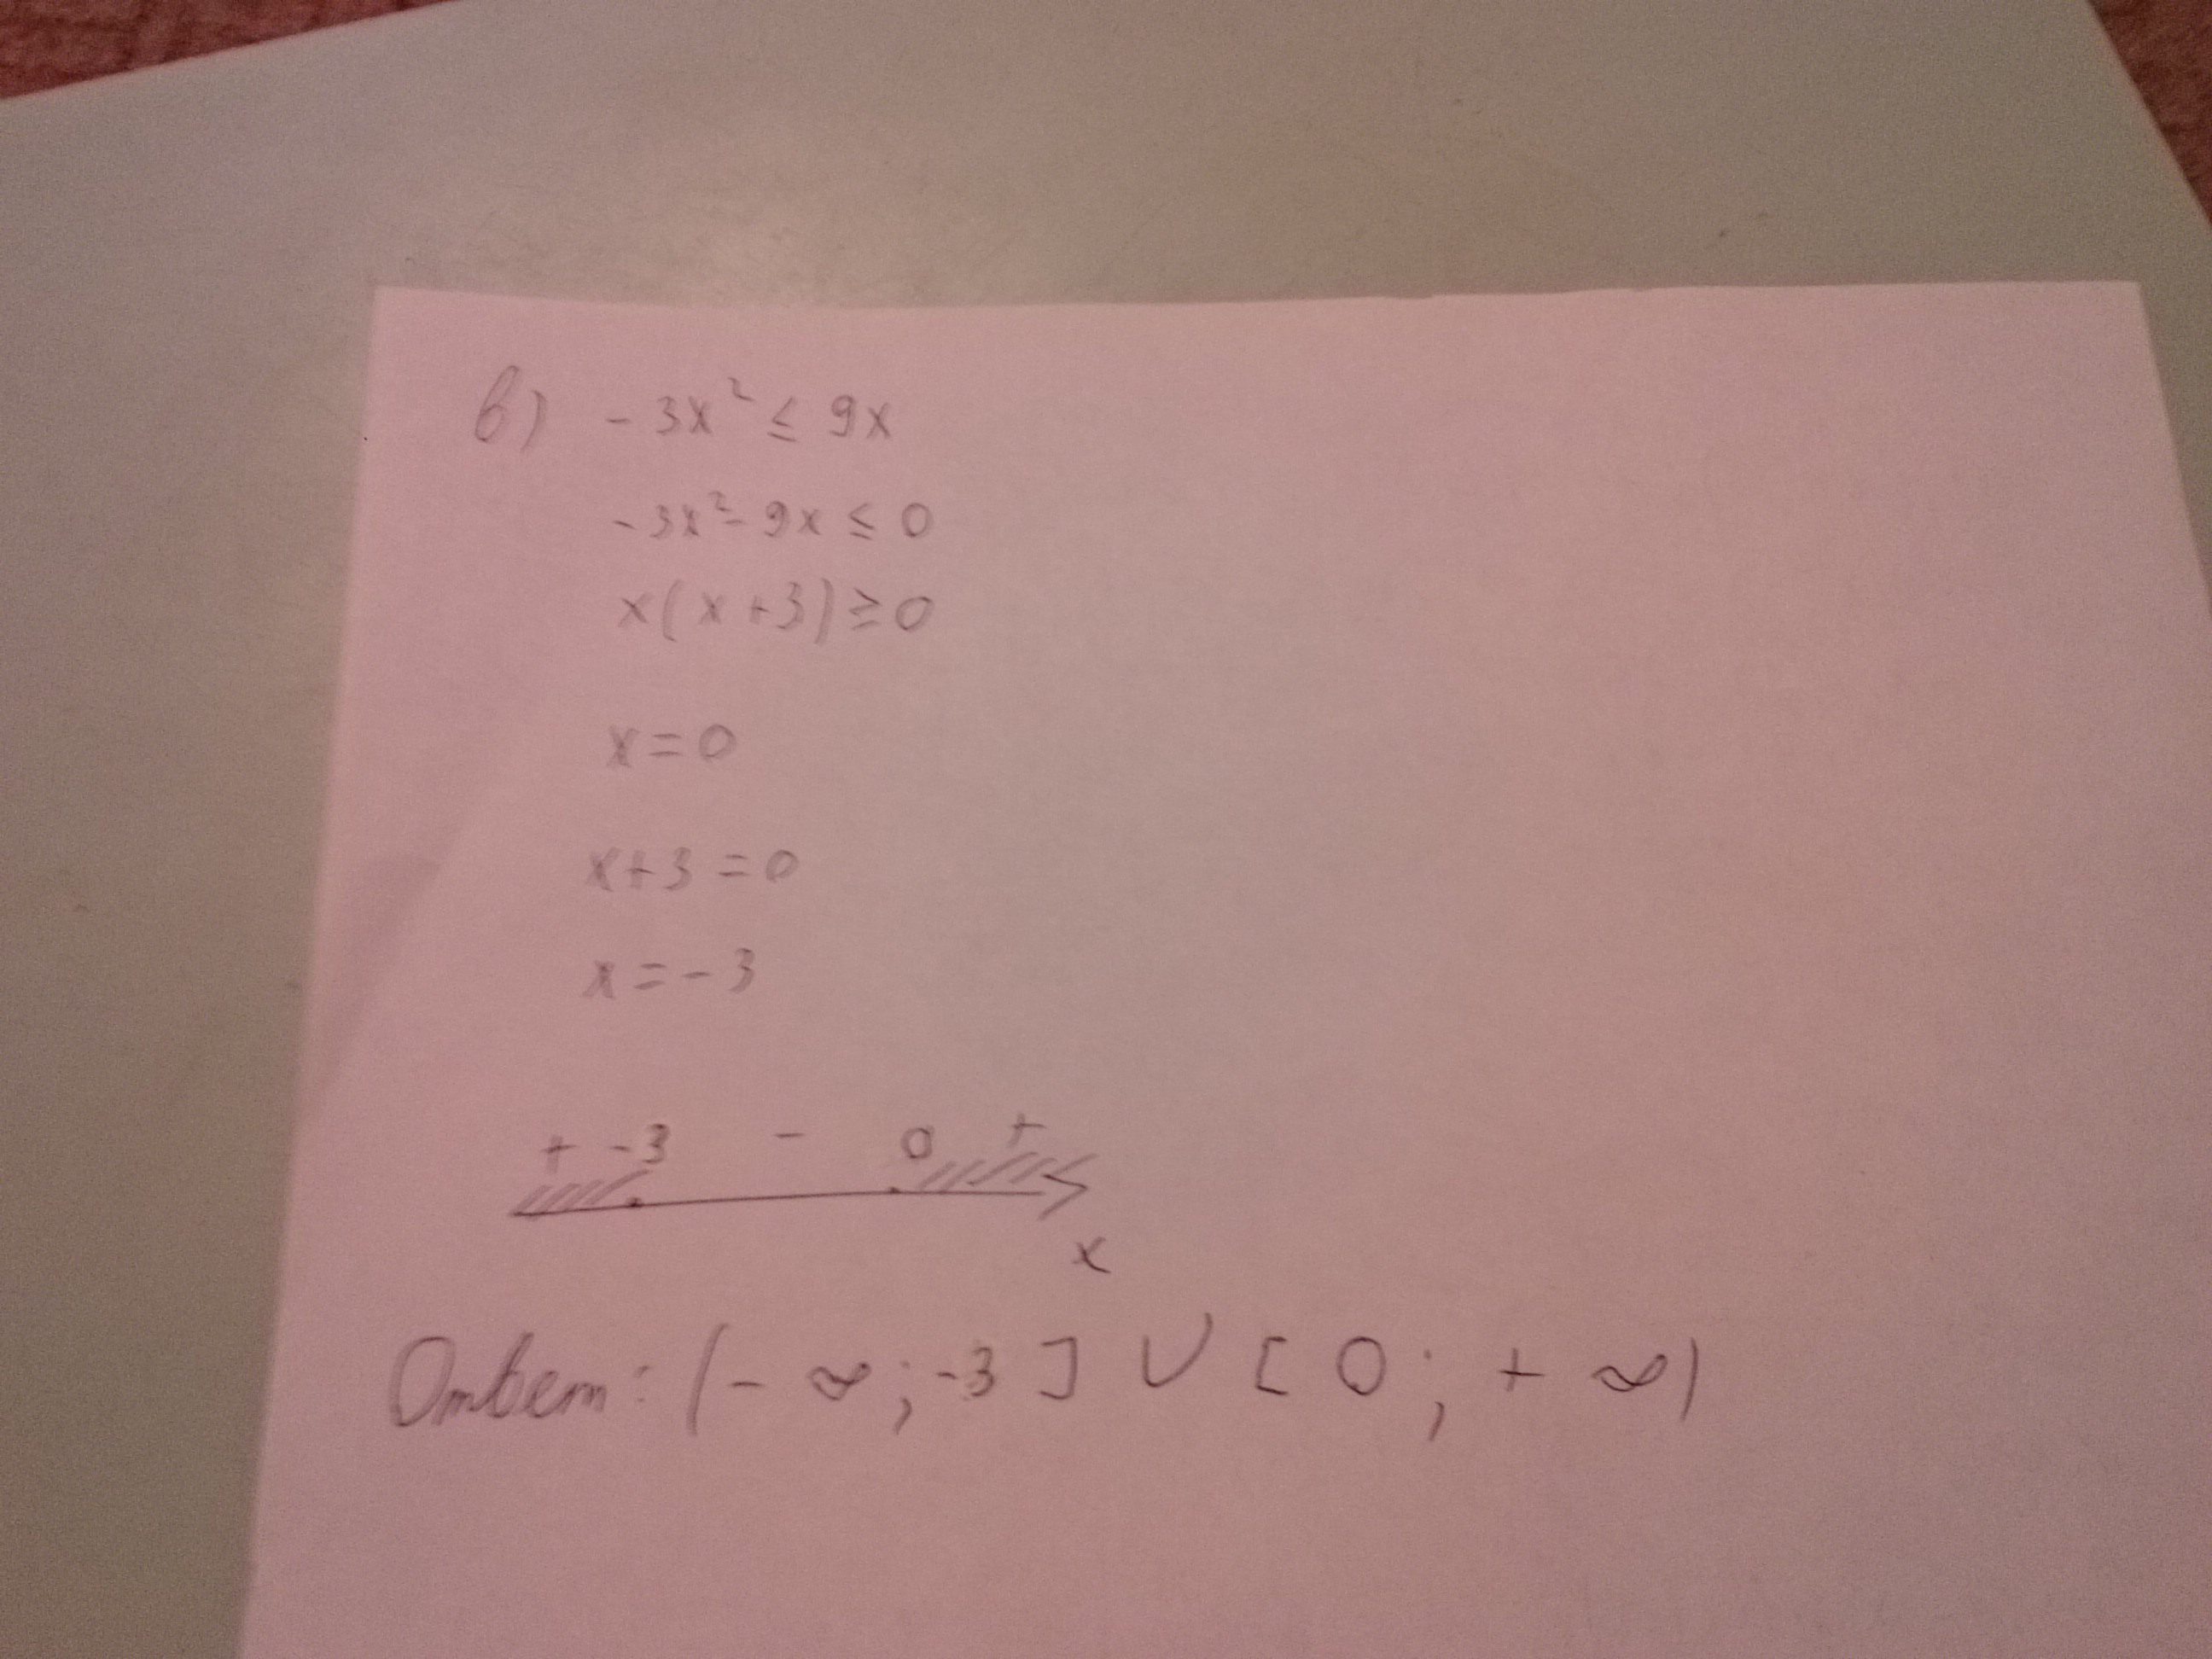 в) -3x² ≤ 9x
-3x² - 9x ≤ 0
x(x+3) ≥ 0
x = 0
x+3 = 0
x = -3
+ -3 - 0 +
x
Ответ: (-∞; -3] ∪ [0; +∞)